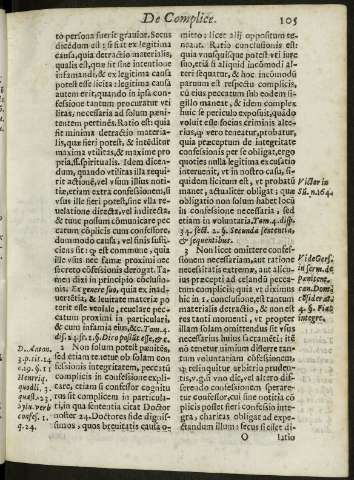 De Complice.
105
to persona fuerit grauior. Secus
dicẽdum est; si fiat ex legitima
causa, quia detractio materialis,
qualis est, quæ fit sine intentione
infamandi, & ex legitima causa
potest esse licita: legitima causa
autem erit, quando in ipsa con-
fessione tantum procuratur vti
litas, necessaria ad solum pœni-
tentem pertinẽs. Ratio est: quia
sit minima detractio materia-
lis, quæ fieri potest, & intẽditur
maxima vtilitas, & maxime pro
pria, ss. spiritualis. Idem dicen-
dum, quando vtilitas illa requi-
rit actionẽ, vel vsum illius noti-
tiæ, etiam extra confessionem, si
vsus ille fieri potest, sine vlla re-
uelatione directa, vel indirecta,
& tunc possum communicare pec
catum cõplicis cum confessore,
dummodo causa, vel finis suffi-
ciens sit: & est commune, quia
ille vsus nec famæ proximi nec
secreto cõfessionis derogat. Ta-
men dixi in principio conclusio-
nis. Ex genere suo, quia ex inad-
uertẽtia, & leuitate materiæ po
terit esse veniale, reuelare pec-
catum proximi in particulari;
& cum infamia eius, &c. Tom. 4.
disp. 34. sect. 2. §. Dico posse esse, &c.
2 Non solum potest pænitẽs,
sed etiam tenetur ob solam con
fessionis integritatem, peccatũ
complicis in confessione expli-
care, etiam si confessor cognitu
rus sit complicem in particula-
ri, in qua sententia citat Doctor
noster 24. Doctores fide dignis-
simos, quos breuitatis causa o-
D. Anton.
3. p. tit. 14.
c. 19. §. 11
Henriq.
quodl. 5.
quæst. 23.
confes. 1.
q. 24.
mitto: licet alij oppositum te-
neant. Ratio conclusionis est:
quia vnusquisque potest vti iure
suo, etiã si aliquid incõmodi al-
teri sequatur, & hoc incõmodũ
paruum est respectu complicis,
cũ eius peccatum sub eodem si-
gillo maneat, & idem complex
huic se periculo exposuit, quãdo
voluit esse socius criminis alte-
rius, q̃ vero teneatur, probatur,
quia præceptum de integritate
confessionis per se obligat, ergo
quoties nullà legitima excusatio
interuenit, vt in nostro casu, si-
quidem licitum est, vt probatũ
manet, adstulitter obligat: quæ
obligatio non solum habet locũ
in confessione necessaria, sed
etiam in voluntaria. Tom. 4. disp.
34. sect. 2. §. Secunda sententia,
& sequentibus.
3 Non licet omittere confes-
sionem necessariam, aut ratione
necessitatis extremæ, aut alicu-
ius præcepti ad celandũ pecca-
tum complicis; quia vt diximus
hic in 1. conclusione, est tantum
materialis detractio, & non est
res tanti momenti, vt propter
illam solam omittendus sit vsus
necessarius huius sacramẽti: itẽ
nõ tenetur nimium differre tan-
tum voluntariam cõfessionem,
q̃ relinquitur arbitrio pruden-
tis, v. g. si vno die, vel altero dif-
ferendo confessionem sperare-
tur confessor, cui sine notitia cõ
plicis posset fieri confessio inte-
gra, charitas obligat ad expec-
tandum illum: secus si esset di-
Victor in
Sũ. n. 164.
Vide Gers.
in serm. de
4. §. Fiat
integre.
O
latio